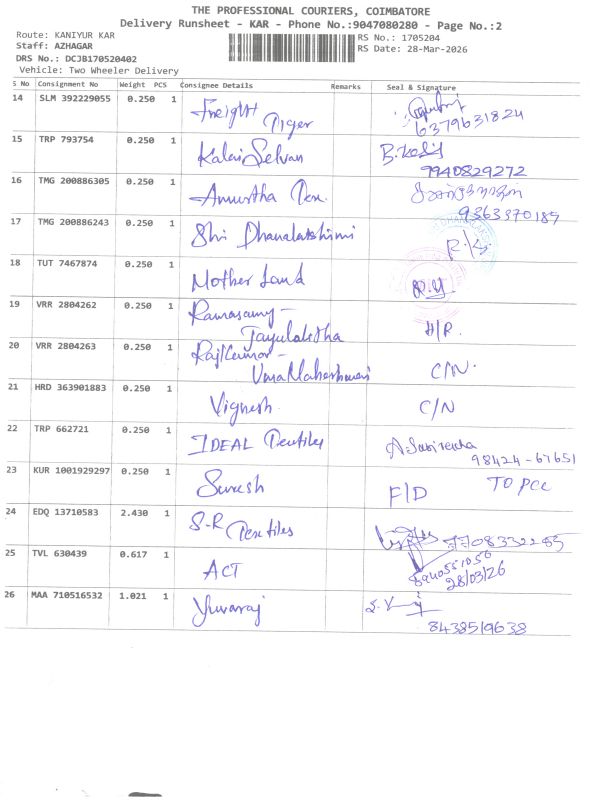 THE PROFESSIONAL COURIERS, COIMBATORE
Delivery Runsheet - KAR - Phone No.:9047080280 - Page No.:2
Route: KANIYUR KAR
RS No.: 1705204
Staff: AZHAGAR
RS Date: 28-Mar-2026
DRS No.: DCJB170520402
Vehicle: Two Wheeler Delivery
S No Consignment No Weight PCS Consignee Details Remarks Seal & Signature
14 SLM 392229055 0.250 1 Freight Tiger
6379631824
15 TRP 793754 0.250 1 Kalai Selvan
9940829272
16 TMG 200886305 0.250 1
9363370185
17 TMG 200886243 0.250 1 Shri Dhanalakshimi
18 TUT 7467874 0.250 1 Mother Land
19 VRR 2804262 0.250 1 Ramasamy -
H/R.
20 VRR 2804263 0.250 1 RajKumar -
UmaMaheshwari C/N.
21 HRD 363901883 0.250 1 Vignesh C/N
22 TRP 662721 0.250 1 IDEAL Textiles
98424-67651
23 KUR 1001929297 0.250 1 Suresh F/D TO PCC
24 EDQ 13710583 2.430 1 S-R Textiles 7708332285
25 TVL 630439 0.617 1 ACT 8940551056
28/03/26
26 MAA 710516532 1.021 1 Yuvaraj
8438519638